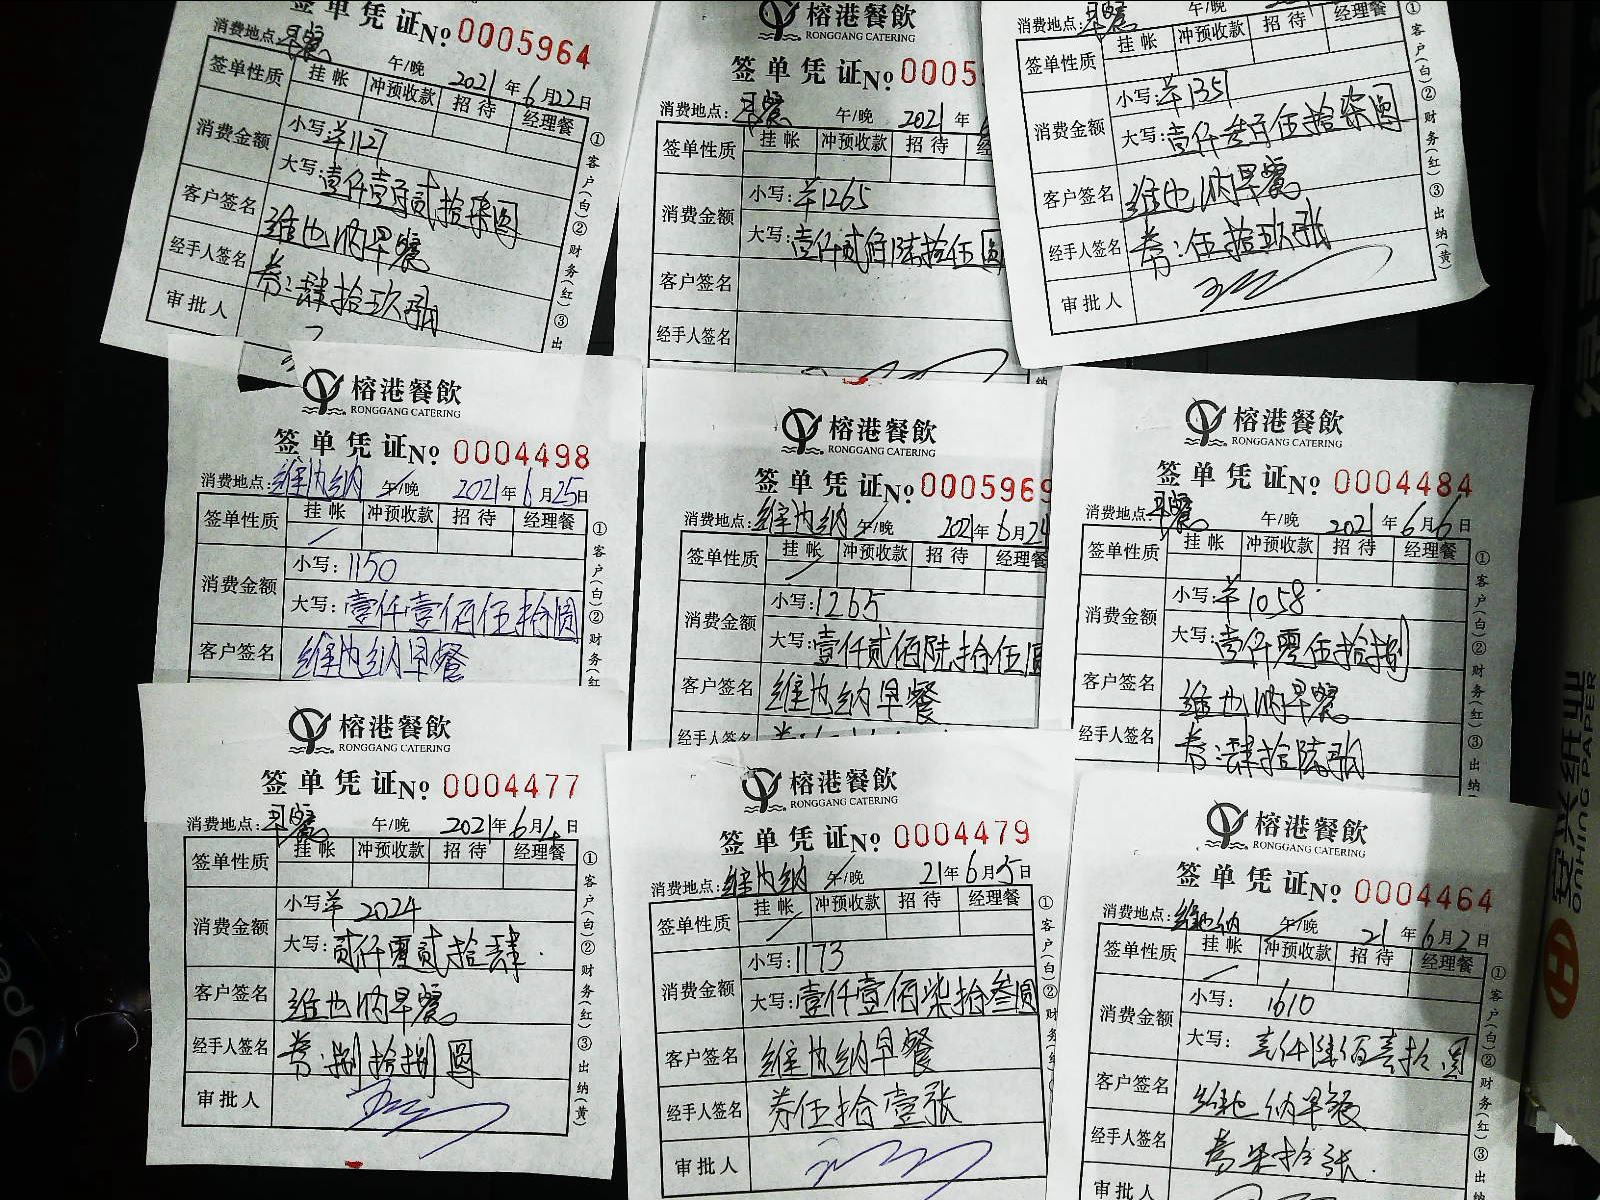 签单凭证No 0005964
消费地点:早餐 午/晚 2021年6月22日
签单性质 挂帐 冲预收款 招待 经理餐
消费金额 小写:羊1127
大写:壹仟壹百贰拾柒圆
客户签名 维也纳早餐
经手人签名 券:肆拾玖张
审批人
①客户(白)②财务(红)③出
榕港餐飲
RONGGANG CATERING
签单凭证No 0005
消费地点:早餐 午/晚 2021年
签单性质 挂帐 冲预收款 招待 经
消费金额 小写:羊1265
大写:壹仟贰佰陆拾伍圆
客户签名
经手人签名
消费地点:早餐 午/晚
签单性质 挂帐 冲预收款 招待 经理餐
消费金额 小写:羊1351
大写:壹仟叁百伍拾柒圆
客户签名 维也纳早餐
经手人签名 券:伍拾玖张
审批人
①客户(白)②财务(红)③出纳(黄)
榕港餐飲
RONGGANG CATERING
签单凭证No 0004498
消费地点:维也纳 午/晚 2021年6月25日
签单性质 挂帐 冲预收款 招待 经理餐
消费金额 小写:1150
大写:壹仟壹佰伍拾圆
客户签名 维也纳早餐
①客户(白)②财务(红
榕港餐飲
RONGGANG CATERING
签单凭证No 0005969
消费地点:维也纳 午/晚 2021年6月24
签单性质 挂帐 冲预收款 招待 经理餐
消费金额 小写:1265
大写:壹仟贰佰陆拾伍圆
客户签名 维也纳早餐
经手人签名
榕港餐飲
RONGGANG CATERING
签单凭证No 0004484
消费地点:早餐 午/晚 2021年6月6日
签单性质 挂帐 冲预收款 招待 经理餐
消费金额 小写:羊1058
大写:壹仟零伍拾捌
客户签名 维也纳早餐
经手人签名 券:肆拾陆张
①客户(白)②财务(红)③出纳
榕港餐飲
RONGGANG CATERING
签单凭证No 0004477
消费地点:早餐 午/晚 2021年6月4日
签单性质 挂帐 冲预收款 招待 经理餐
消费金额 小写:羊2024
大写:贰仟零贰拾肆
客户签名 维也纳早餐
经手人签名 券:捌拾捌圆
审批人
①客户(白)②财务(红)③出纳(黄)
榕港餐飲
RONGGANG CATERING
签单凭证No 0004479
消费地点:维也纳 午/晚 21年6月5日
签单性质 挂帐 冲预收款 招待 经理餐
消费金额 小写:1173
大写:壹仟壹佰柒拾叁圆
客户签名 维也纳早餐
经手人签名 券伍拾壹张
审批人
①客户(白)②财务
榕港餐飲
RONGGANG CATERING
签单凭证No 0004464
消费地点:维也纳 午/晚 21年6月2日
签单性质 挂帐 冲预收款 招待 经理餐
消费金额 小写:1610
大写:壹仟陆佰壹拾圆
客户签名 维也纳早餐
经手人签名 券柒拾张
审批人
①客户(白)②财务(红)③出纳
ONHING PAPER